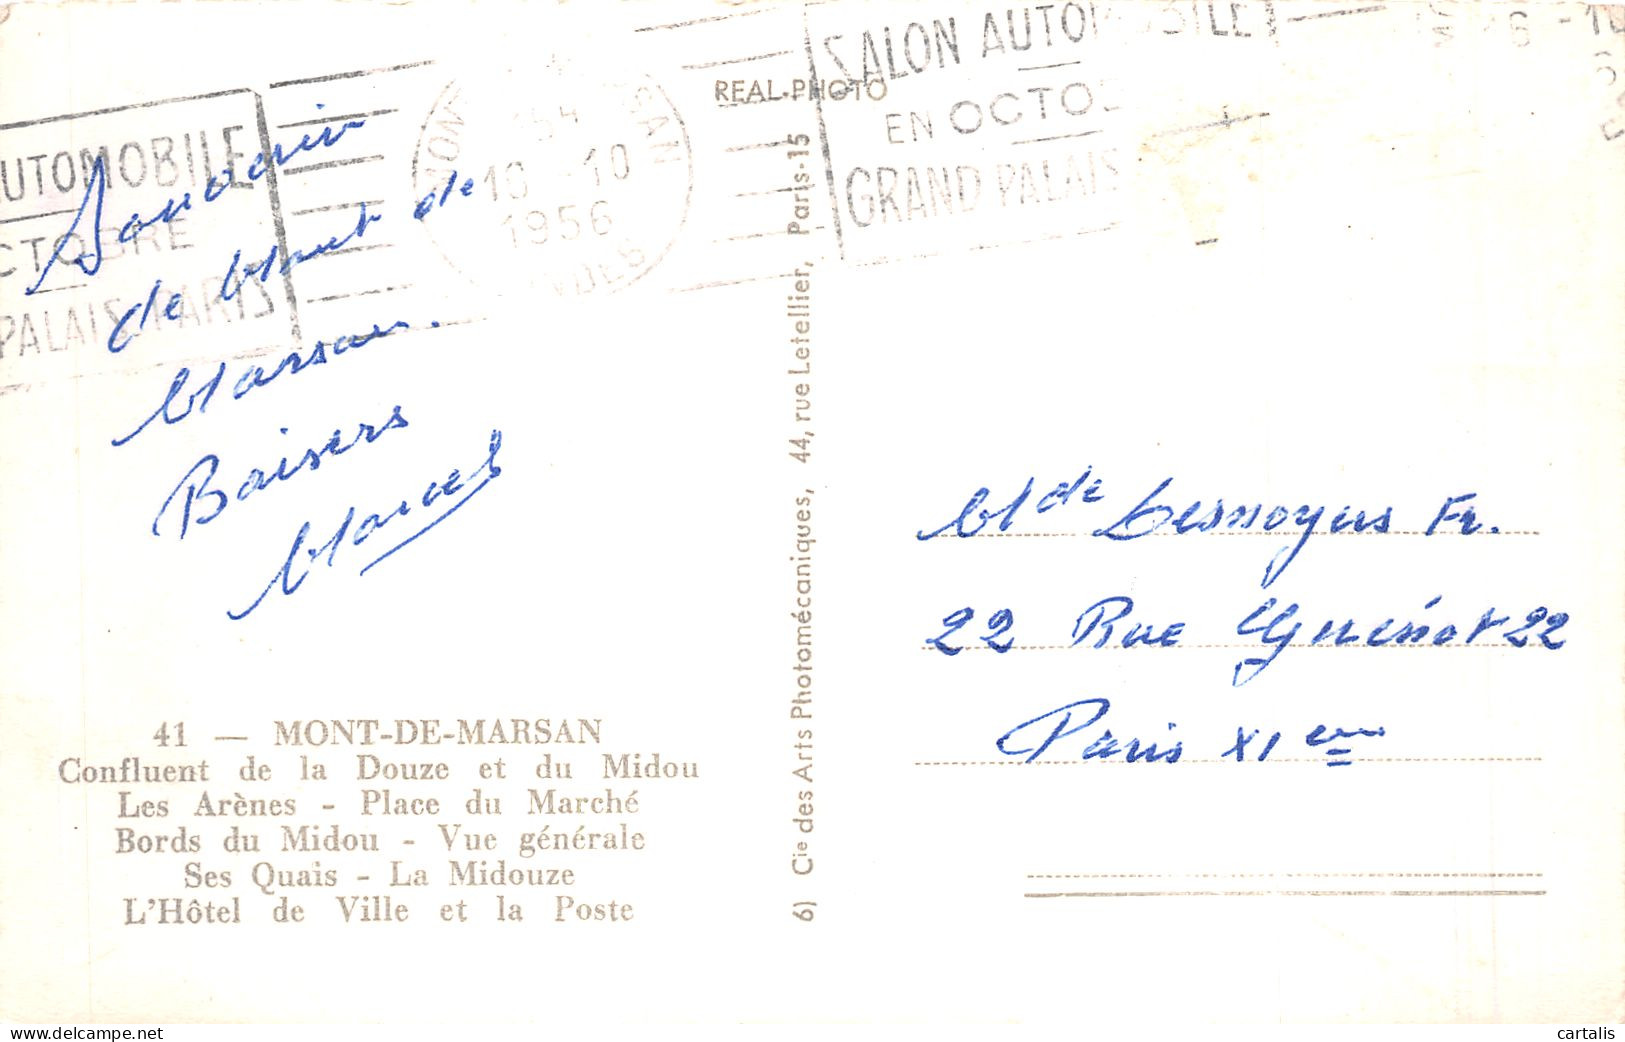 UTOMOBILE
CTOBRE
PALAIS PARIS
10 - 10
1956
SALON AUTOMOBILE
EN OCTO
GRAND PALAIS
REAL-PHOTO
Souvenir
de Mont de
Marsan.
Baisers
Marcel
41 — MONT-DE-MARSAN
Confluent de la Douze et du Midou
Les Arènes - Place du Marché
Bords du Midou - Vue générale
Ses Quais - La Midouze
L'Hôtel de Ville et la Poste
6) Cie des Arts Photomécaniques, 44, rue Letellier, Paris-15
Mde Lesnoyers Fr.
22 Rue Guénot 22
Paris XIem
cartalis